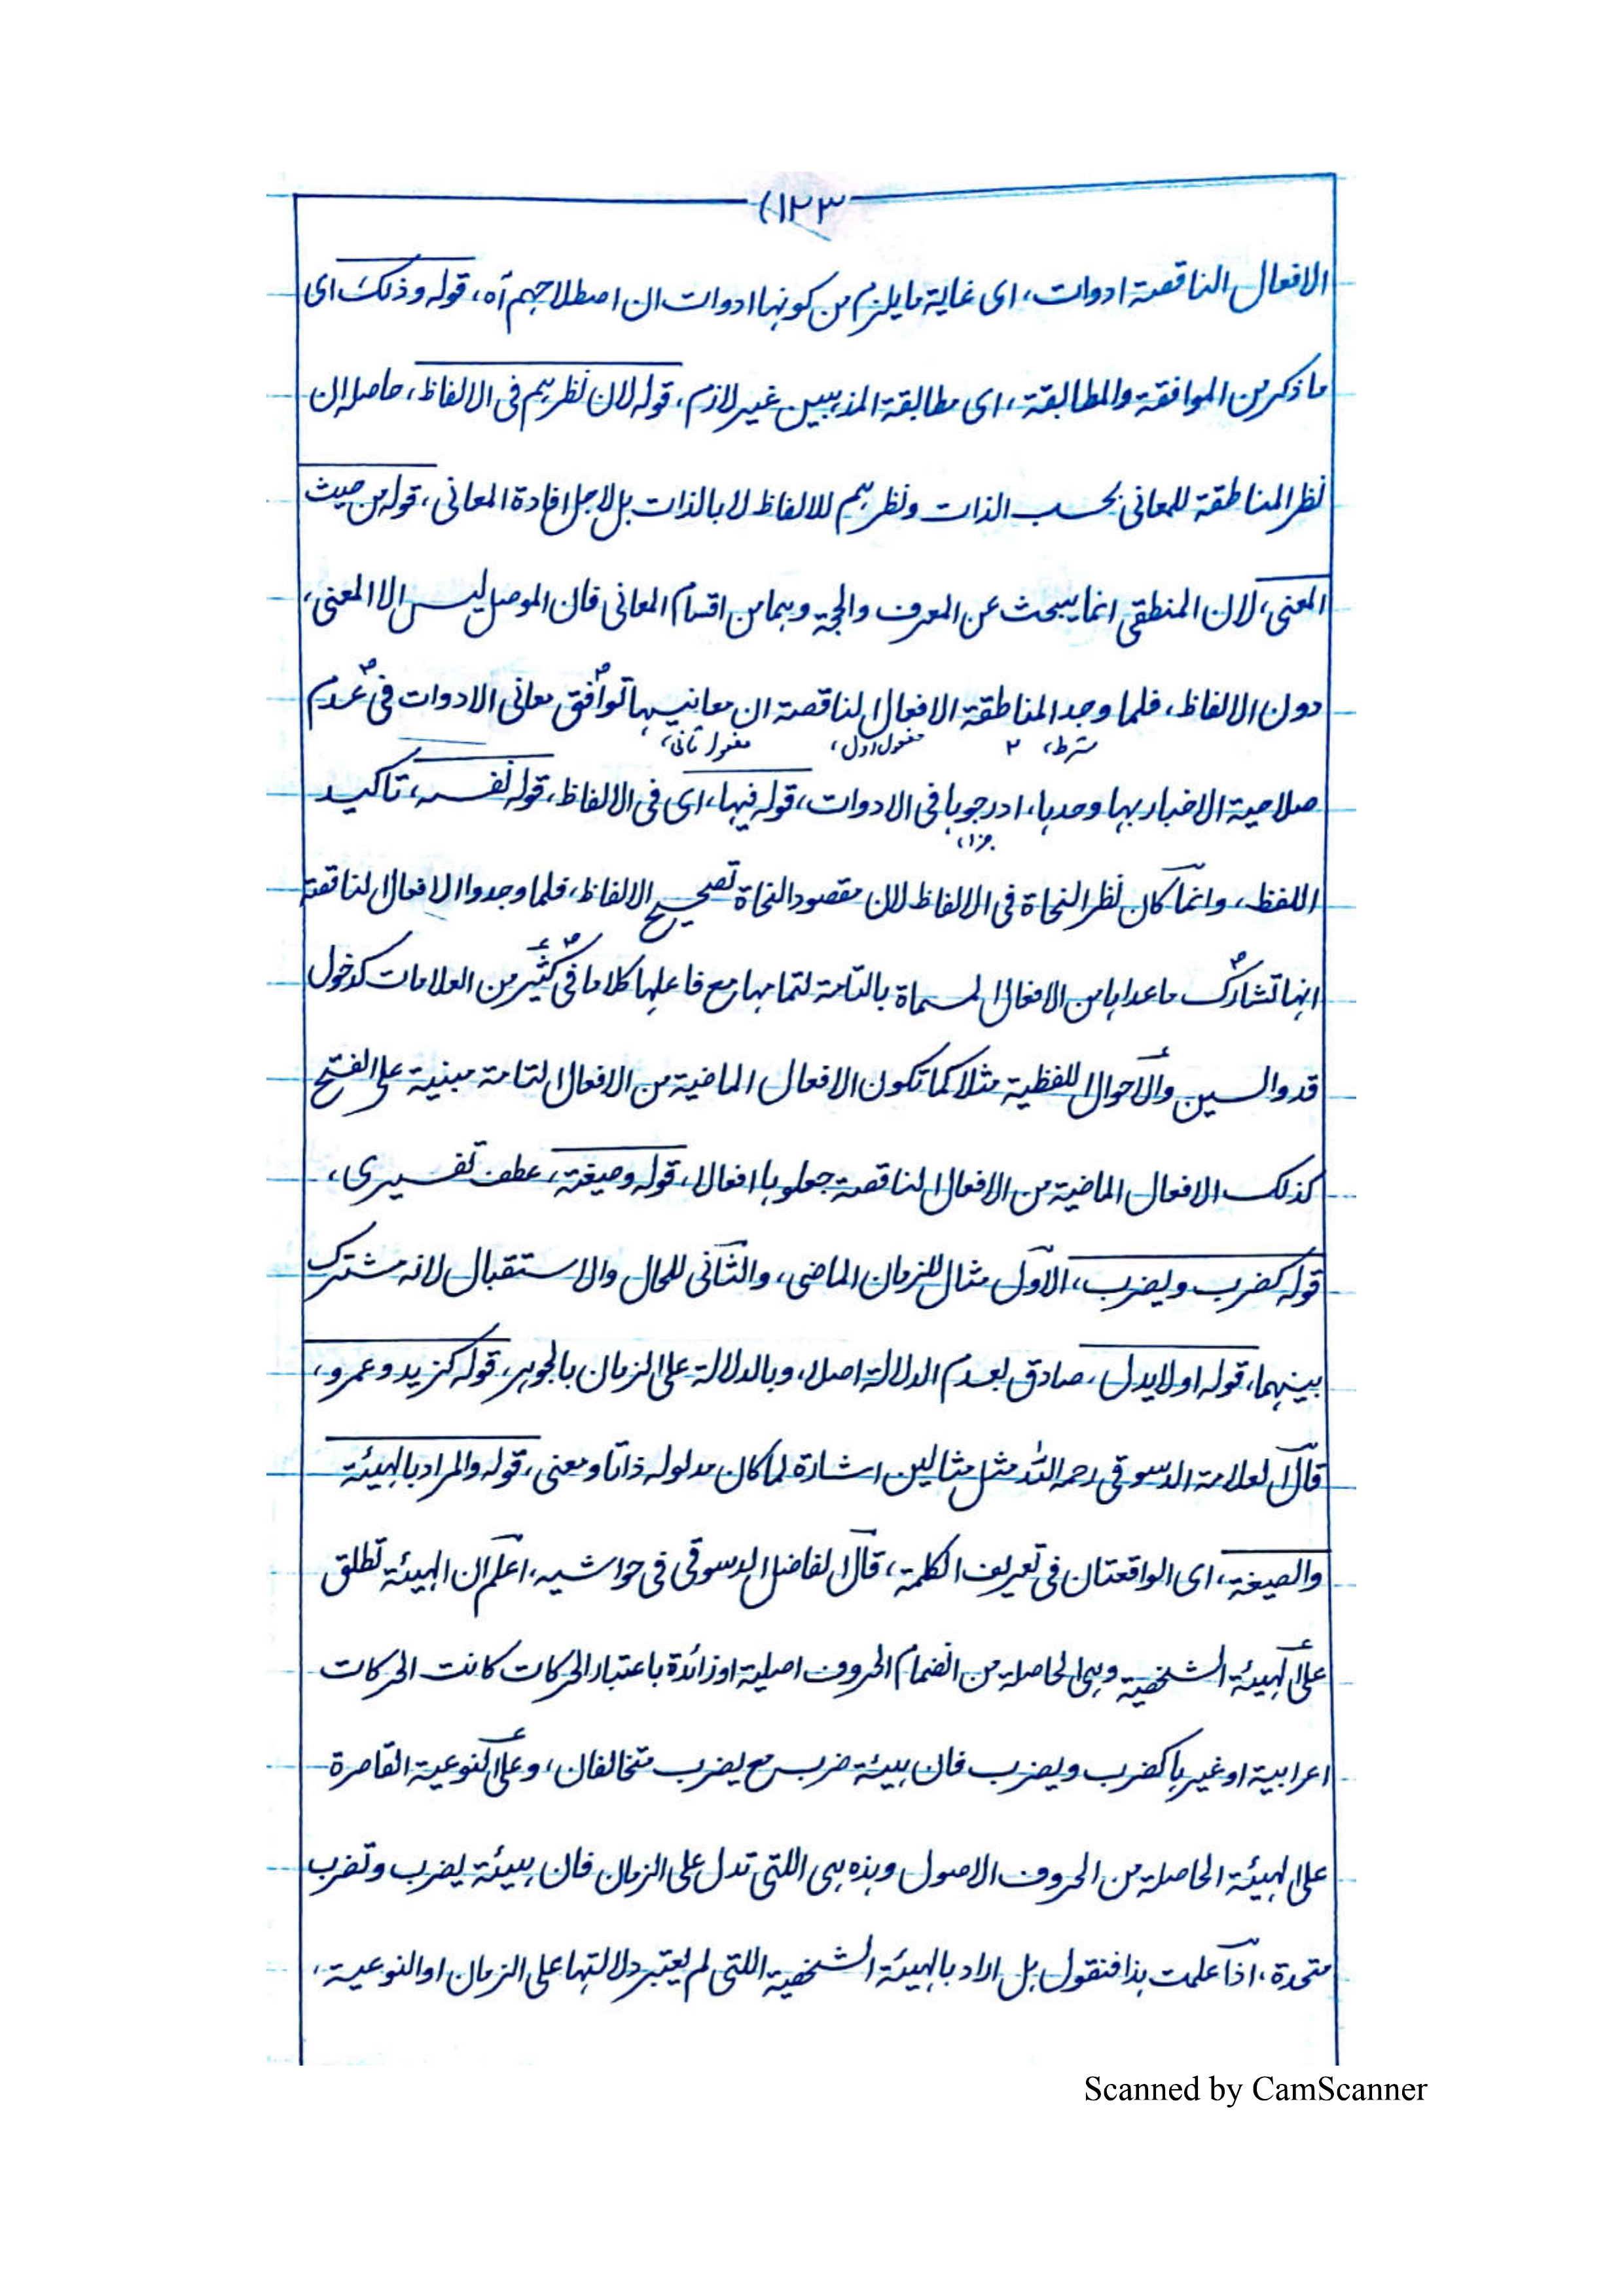 (١٢٣
الافعال الناقصة ادوات، ای غایة ما یلزم من کونها ادوات ان اصطلاحهم آه، قوله وذلک ای
ما ذکر من الموافقة والمطابقة، ای مطابقة المذهبین غیر لازم، قوله لان نظرهم فی الالفاظ، حاصله ان
نظر المناطقة للمعانی بحسب الذات ونظرهم للالفاظ لا بالذات بل لاجل افادة المعانی، قوله من حیث
المعنی، لان المنطقی انما یبحث عن المعرف والحجة وهما من اقسام المعانی فان الموصل لیس الا المعنی،
دون الالفاظ، فلما وجد المناطقة الافعال الناقصة ان معانیها توافق معانی الادوات فی عدم
شرط، ٢ مفعول اول، مفعول ثانی،
صلاحیة الاخبار بها وحدها، ادرجوها فی الادوات، قوله فیها، ای فی الالفاظ، قوله نفسه، تاکید
جزا،
اللفظ، وانما کان نظر النحاة فی الالفاظ لان مقصود النحاة تصحیح الالفاظ، فلما وجدوا الافعال الناقصة
انها تشارک ما عداها من الافعال المسماة بالتامة لتمامها مع فاعلها کلاما فی کثیر من العلامات کدخول
قد والسین والاحوال اللفظیة مثلا کما تکون الافعال الماضیة من الافعال التامة مبنیة علی الفتح
کذلک الافعال الماضیة من الافعال الناقصة جعلوها افعالا، قوله وصیغة، عطف تفسیری،
قوله کضرب ویضرب، الاول مثال للزمان الماضی، والثانی للحال والاستقبال لانه مشترک
بینهما، قوله او لا یدل، صادق بعدم الدلالة اصلا، وبالدلالة علی الزمان بالجوهر، قوله کزید وعمرو،
قال العلامة الدسوقی رحمه الله مثل مثالین اشارة لما کان مدلوله ذاتا ومعنی، قوله والمراد بالهیئة
والصیغة، ای الواقعتان فی تعریف الکلمة، قال الفاضل الدسوقی فی حواشیه، اعلم ان الهیئة تطلق
علی الهیئة الشخصیة وهی الحاصلة من انضمام الحروف اصلیة او زائدة باعتبار الحرکات کانت الحرکات
اعرابیة او غیرها کضرب ویضرب فان هیئة ضرب مع یضرب متخالفان، وعلی النوعیة القاصرة
علی الهیئة الحاصلة من الحروف الاصول وهذه هی اللتی تدل علی الزمان فان هیئة یضرب وتضرب
متحدة، اذا علمت هذا فنقول هل اراد بالهیئة الشخصیة اللتی لم یعتبر دلالتها علی الزمان او النوعیة،
Scanned by CamScanner